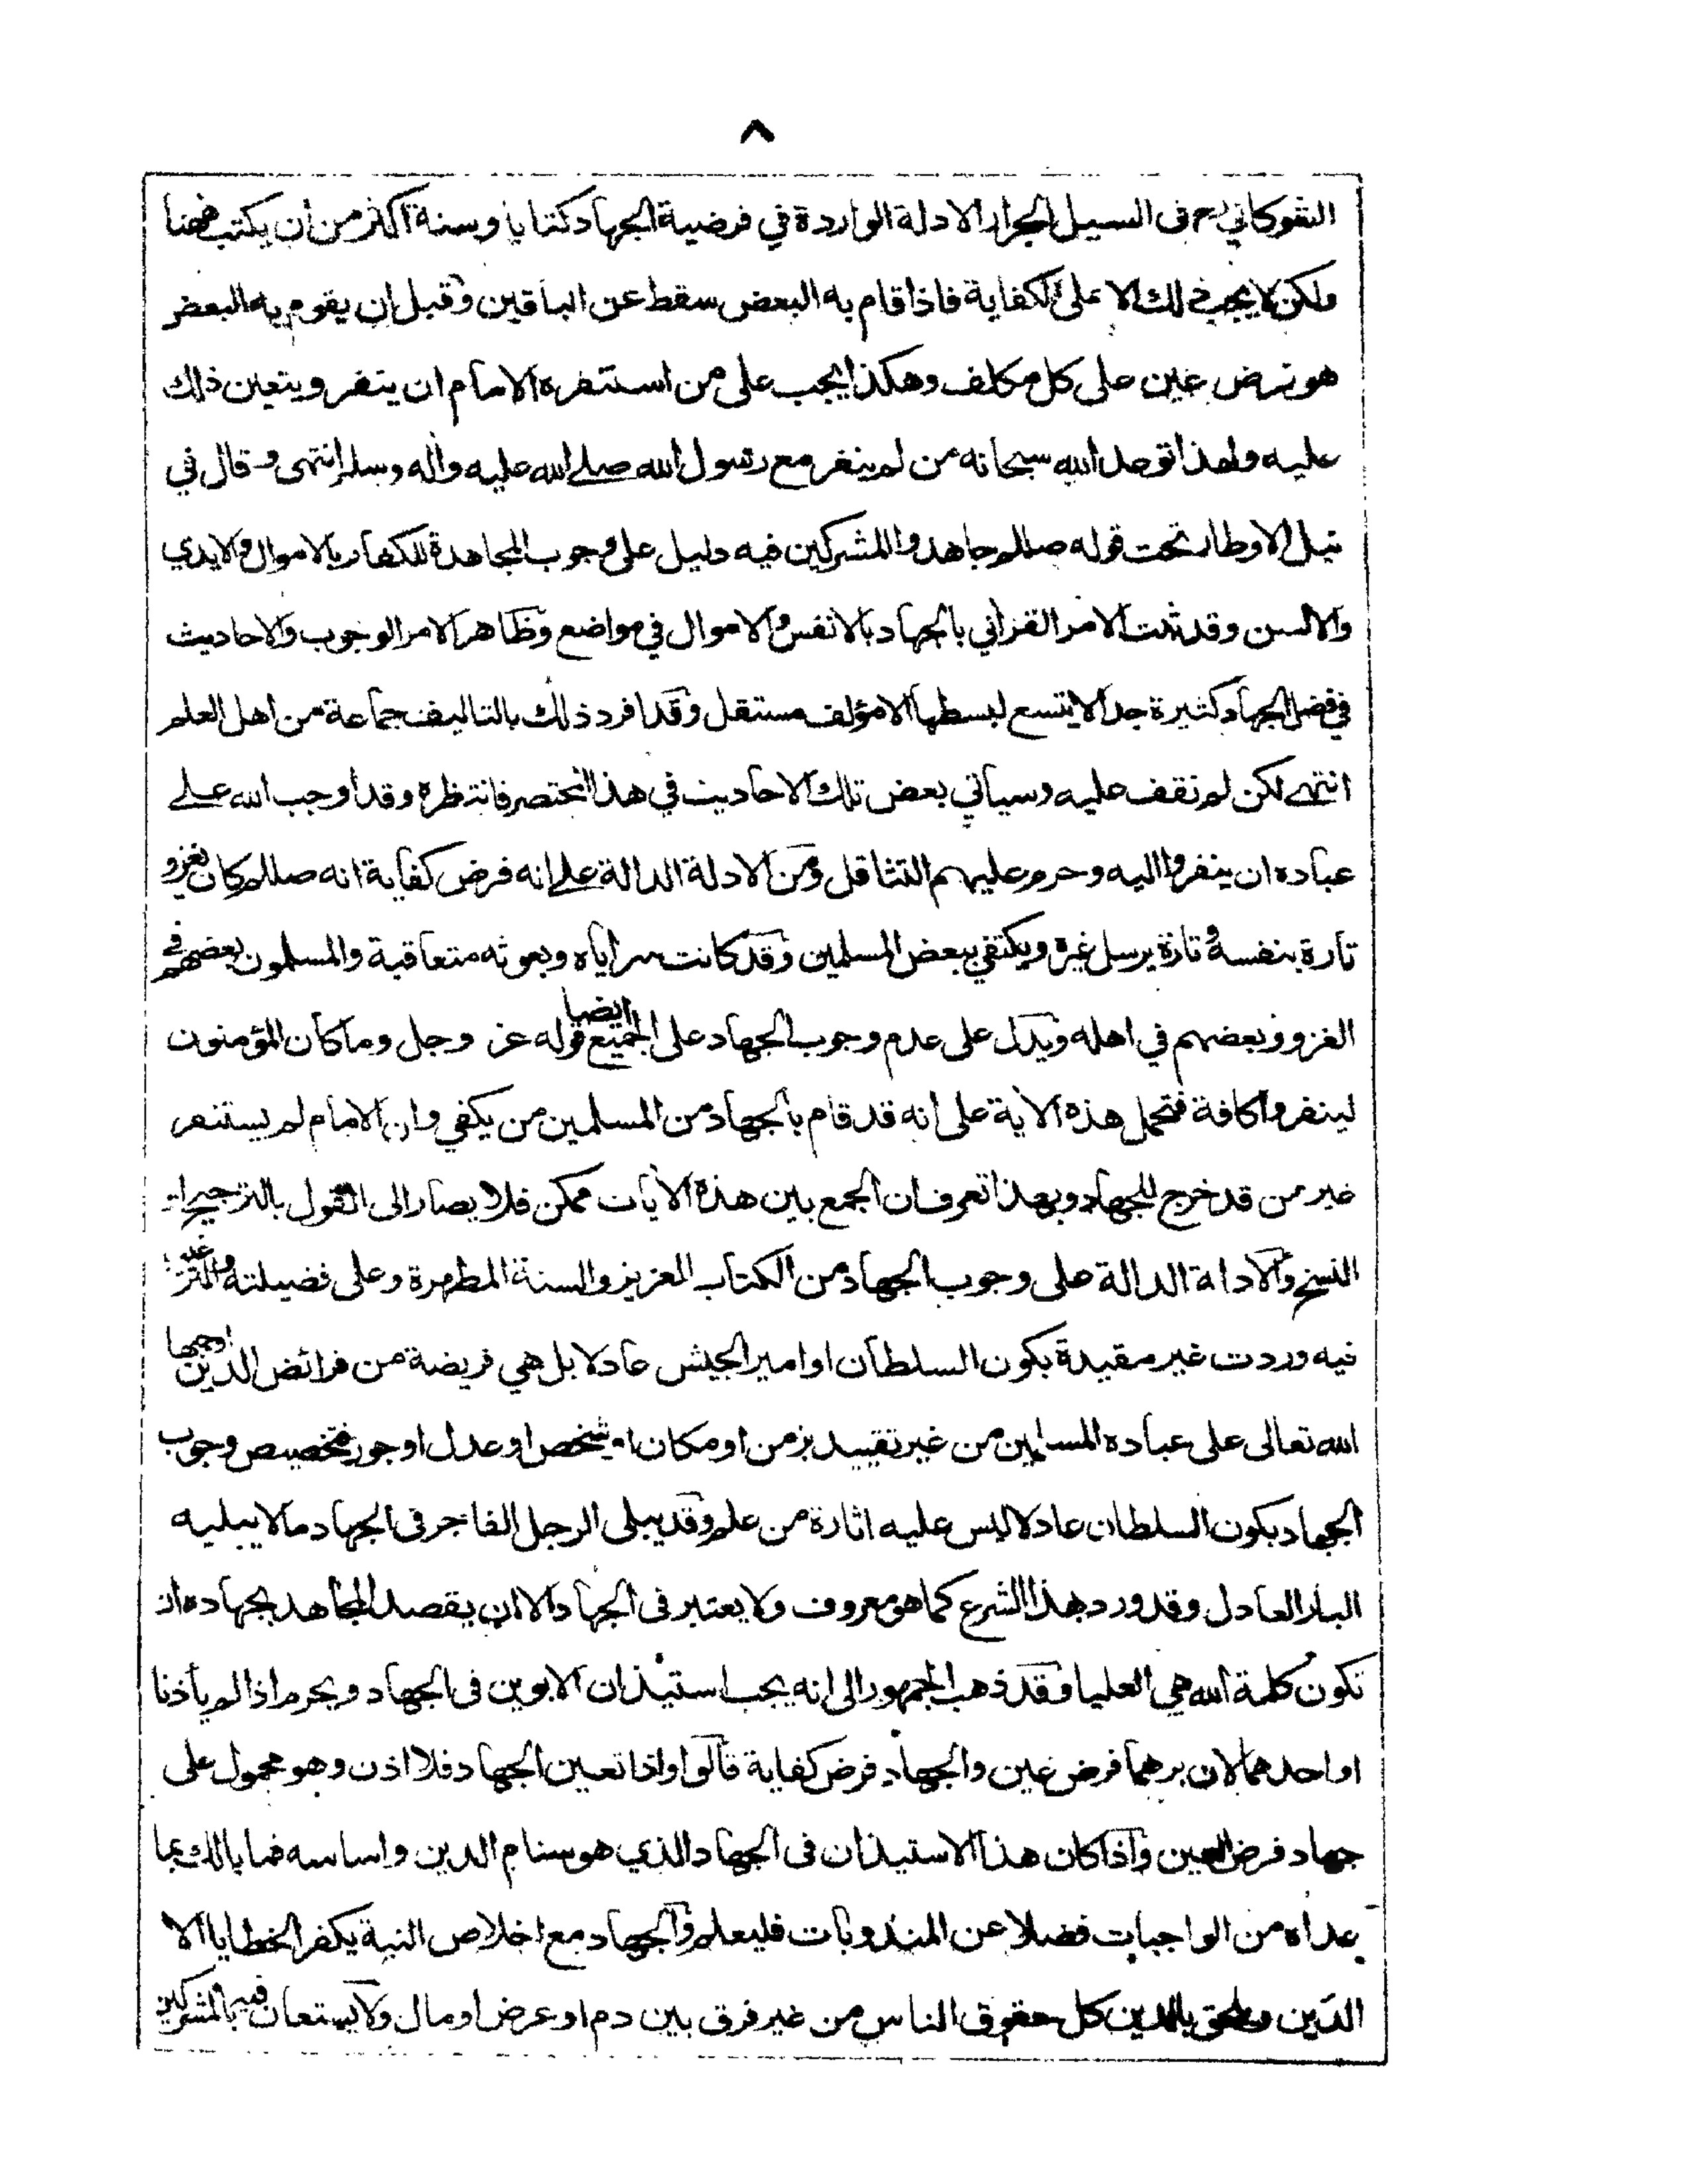 ٨
الشوكاني رح فى السيل الجرار الادلة الواردة في فرضية الجهاد كتابا وسنة اكثر من ان يكتب ههنا
ولكن لا يجب ذلك الا على الكفاية فاذا قام به البعض سقط عن الباقين وقبل ان يقوم به البعض
هو فرض عين على كل مكلف وهكذا يجب على من استنفره الامام ان ينفر ويتعين ذلك
عليه ولهذا توعد الله سبحانه من لم ينفر مع رسول الله صلے الله عليه واٰله وسلم انتهى وقال في
نيل الاوطار تحت قوله صللم جاهدوا المشركين فيه دليل على وجوب المجاهدة للكفار بالاموال والايدي
والالسن وقد ثبت الامر القراني بالجهاد بالانفس والاموال في مواضع وظاهر الامر الوجوب والاحاديث
في فضل الجهاد كثيرة جدا لا يتسع لبسطها الا مؤلف مستقل وقد افرد ذلك بالتاليف جماعة من اهل العلم
انتهے لكن لم نقف عليه وسياتي بعض تلك الاحاديث في هذا المختصر فانتظره وقد اوجب الله علے
عباده ان ينفروا اليه وحرم عليهم التثاقل ومن الادلة الدالة علے انه فرض كفاية انه صللم كان يغزو
تارة بنفسه وتارة يرسل غيره ويكتفي ببعض المسلمين وقد كانت سراياه وبعوثه متعاقبة والمسلمون بعضهم في
الغزو وبعضهم في اهله ويدل على عدم وجوب الجهاد على الجميع ايضا قوله عز وجل وما كان المؤمنون
لينفروا كافة فتحمل هذه الاية على انه قد قام بالجهاد من المسلمين من يكفي وان الامام لم يستنفر
غير من قد خرج للجهاد وبهذا تعرف ان الجمع بين هذه الأيات ممكن فلا يصار الى القول بالترجيح او
النسخ والادلة الدالة على وجوب الجهاد من الكتاب العزيز والسنة المطهرة وعلى فضيلته والترغيب
فيه وردت غير مقيدة بكون السلطان او امير الجيش عادلا بل هي فريضة من فرائض الدين اوجبها
الله تعالى على عباده المسلمين من غير تقييد بزمن او مكان او شخص او عدل او جور فتخصيص وجوب
الجهاد بكون السلطان عادلا ليس عليه اثارة من علم وقد يبلى الرجل الفاجر فى الجهاد ما لا يبليه
البار العادل وقد ورد بهذا الشرع كما هو معروف ولا يعتبر فى الجهاد الا ان يقصد المجاهد بجهاده ان
تكون كلمة الله هي العليا وقد ذهب الجمهور الى انه يجب استيذان الابوين فى الجهاد ويحرم اذا لم يأذنا
او احدهما لان برهما فرض عين والجهاد فرض كفاية قالوا واذا تعين الجهاد فلا اذن وهو محمول على
جهاد فرض العين واذا كان هذا الاستيذان فى الجهاد الذي هو سنام الدين واساسه فما بالك بما
عداه من الواجبات فضلا عن المندوبات فليعلم والجهاد مع اخلاص النية يكفر الخطايا الا
الدين ويلحق بالدين كل حقوق الناس من غير فرق بين دم او عرض او مال ولا يستعان فيه بالمشركين